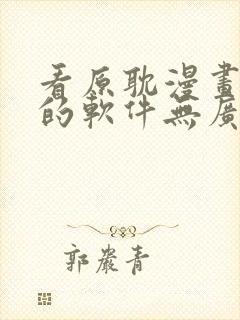 看原耽漫畫
的軟件無廣
郭嚴青